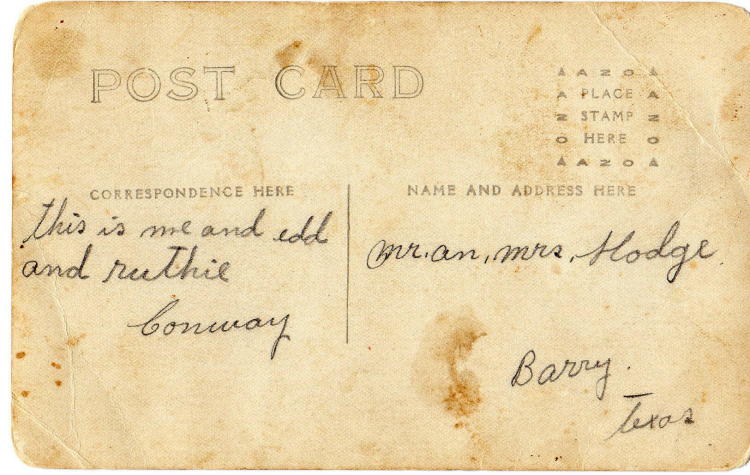 POST CARD
▲ A Z O ▲
A PLACE A
Z STAMP Z
O HERE O
▲ A Z O ▲
CORRESPONDENCE HERE
NAME AND ADDRESS HERE
this is me and edd
and ruthie
Conway
mr. an, mrs, Hodge
Barry.
Texas